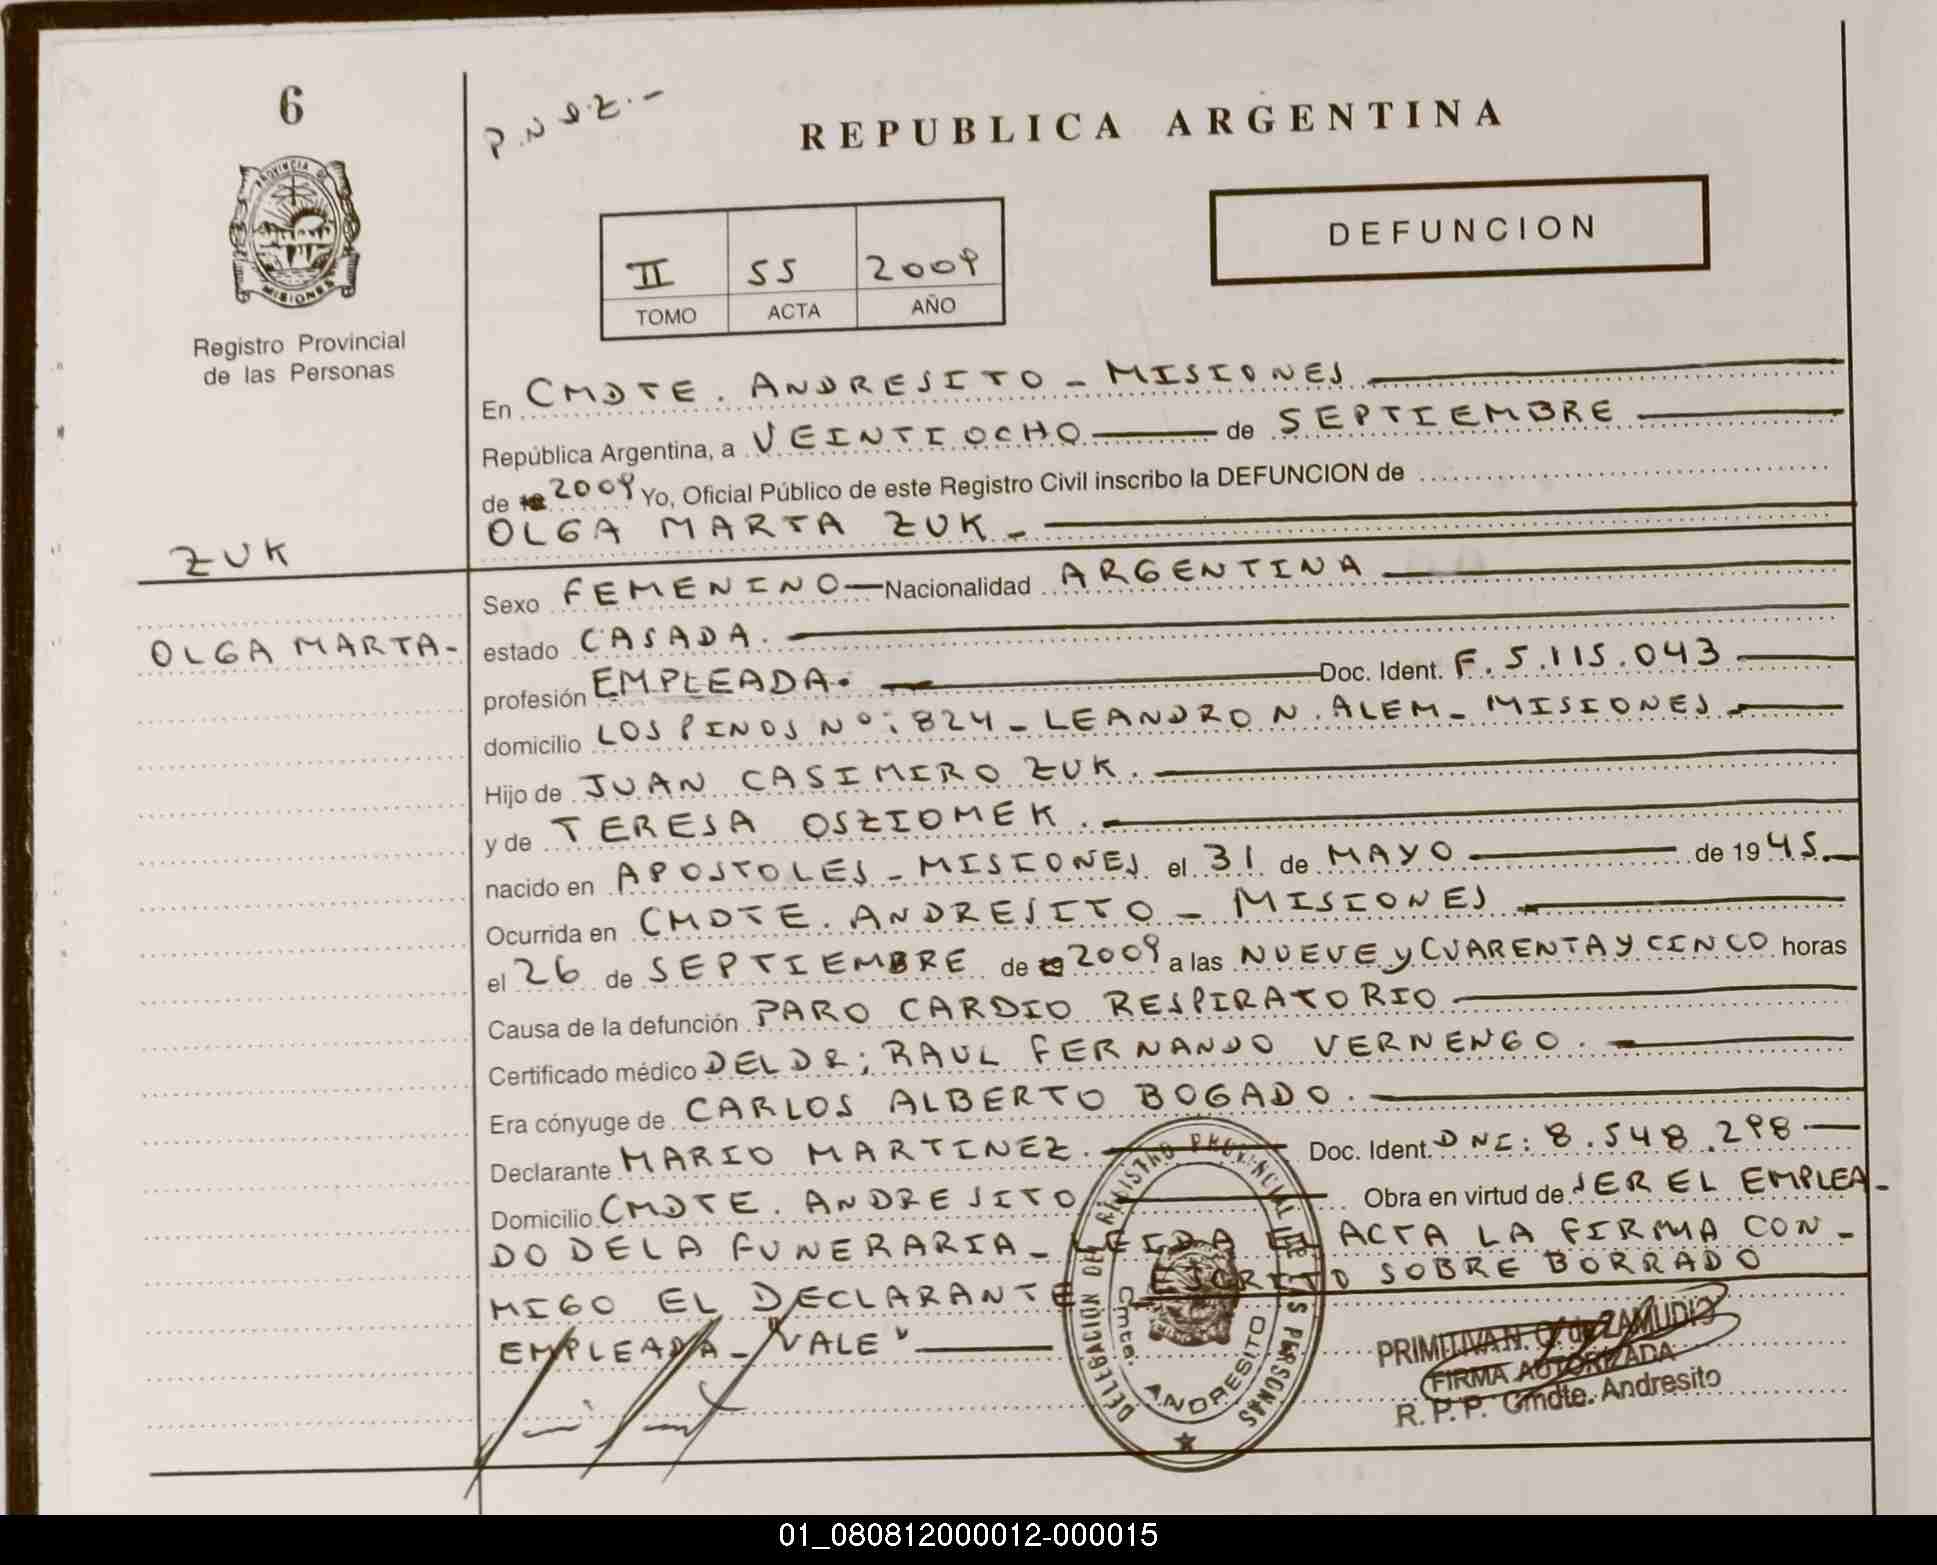 6
PROVINCIA DE
MISIONES
Registro Provincial
de las Personas
P.N
REPUBLICA ARGENTINA
DEFUNCION
II 55 2009
TOMO ACTA AÑO
En CMDTE. ANDRESITO - MISIONES
República Argentina, a VEINTIOCHO de SEPTIEMBRE
de 2009 Yo, Oficial Público de este Registro Civil inscribo la DEFUNCION de
OLGA MARTA ZUK -
ZUK
Sexo FEMENINO Nacionalidad ARGENTINA
OLGA MARTA-
estado CASADA.
profesión EMPLEADA. Doc. Ident. F. 5.115.043
domicilio LOS PINOS Nº: 824 - LEANDRO N. ALEM - MISIONES
Hijo de JUAN CASIMIRO ZUK.
y de TERESA OSZIOMEK.
nacido en APOSTOLES - MISIONES el 31 de MAYO de 1945
Ocurrida en CMDTE. ANDRESITO - MISIONES
el 26 de SEPTIEMBRE de 2009 a las NUEVE y CUARENTA Y CINCO horas
Causa de la defunción PARO CARDIO RESPIRATORIO
Certificado médico DEL DR; RAUL FERNANDO VERNENGO.
Era cónyuge de CARLOS ALBERTO BOGADO.
Declarante MARIO MARTINEZ. Doc. Ident. DNI: 8.548.298
Domicilio CMDTE. ANDRESITO Obra en virtud de SER EL EMPLEA-
DO DE LA FUNERARIA - LEIDA EL ACTA LA FIRMA CON-
MIGO EL DECLARANTE ESCRITO SOBRE BORRADO
EMPLEADA - "VALE"
DELEGACION DEL REGISTRO PROVINCIAL DE LAS PERSONAS
Cmte. ANDRESITO
PRIMITIVA N. de ZAMUDIO
FIRMA AUTORIZADA
R. P. P. Cmdte. Andresito
01_080812000012-000015